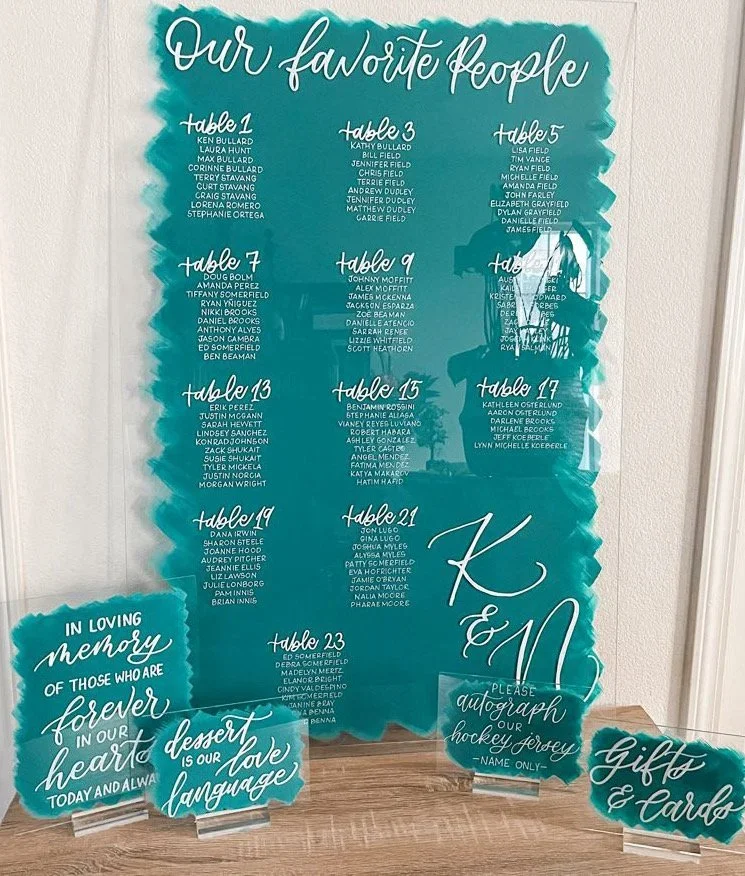 Our favorite People
table 1
KEN BULLARD
LAURA HUNT
MAX BULLARD
CORINNE BULLARD
TERRY STAVANG
CURT STAVANG
CRAIG STAVANG
LORENA ROMERO
STEPHANIE ORTEGA
table 3
KATHY BULLARD
BILL FIELD
JENNIFER FIELD
CHRIS FIELD
TERRIE FIELD
ANDREW DUDLEY
JENNIFER DUDLEY
MATTHEW DUDLEY
CARRIE FIELD
table 5
LISA FIELD
TIM VANCE
RYAN FIELD
MICHELLE FIELD
AMANDA FIELD
JOHN FARLEY
ELIZABETH GRAYFIELD
DYLAN GRAYFIELD
DANIELLE FIELD
JAMES FIELD
table 7
DOUG BOLM
AMANDA PEREZ
TIFFANY SOMERFIELD
RYAN YÑIGUEZ
NIKKI BROOKS
DANIEL BROOKS
ANTHONY ALVES
JASON GAMBRA
ED SOMERFIELD
BEN BEAMAN
table 9
JOHNNY MOFFITT
ALEX MOFFITT
JAMES MCKENNA
JACKSON ESPARZA
ZOE BEAMAN
DANIELLE ATENCIO
SARRAH RENEE
LIZZIE WHITFIELD
SCOTT HEATHORN
table
KRISTEN
RYAN
table 13
ERIK PEREZ
JUSTIN MCGANN
SARAH HEWETT
LINDSEY SANCHEZ
KONRAD JOHNSON
ZACK SHUKAIT
SUSIE SHUKAIT
TYLER MICKELA
JUSTIN NORCIA
MORGAN WRIGHT
table 15
BENJAMIN ROSSINI
STEPHANIE ALIAGA
VIANEY REYES LUVIANO
ROBERT HABARA
ASHLEY GONZALEZ
TYLER CASTRO
ANGEL MENDEZ
FATIMA MENDEZ
KATYA MAKAROV
HATIM HAFID
table 17
KATHLEEN OSTERLUND
AARON OSTERLUND
DARLENE BROOKS
MICHAEL BROOKS
JEFF KOEBERLE
LYNN MICHELLE KOEBERLE
table 19
DANA IRWIN
SHARON STEELE
JOANNE HOOD
AUDREY PITCHER
JEANNIE ELLIS
LIZ LAWSON
JULIE LONBORG
PAM INNIS
BRIAN INNIS
table 21
JON LUGO
GINA LUGO
JOSHUA MYLES
ALYSSA MYLES
PATTY SOMERFIELD
EVA HOFRICHTER
JAMIE O'BRYAN
JORDAN TAYLOR
NALIA MOORE
PHARAE MOORE
table 23
ED SOMERFIELD
DEBRA SOMERFIELD
MADELYN MERTZ
ELANOR BRIGHT
CINDY VALDESPINO
KIM SOMERFIELD
JANINE BRAY
BENNA
BENNA
K
& N
IN LOVING
memory
OF THOSE WHO ARE
forever
IN OUR
hearts
TODAY AND
dessert
IS OUR love
language
PLEASE
autograph
OUR
hockey jersey
-NAME ONLY-
Gifts
& Cards